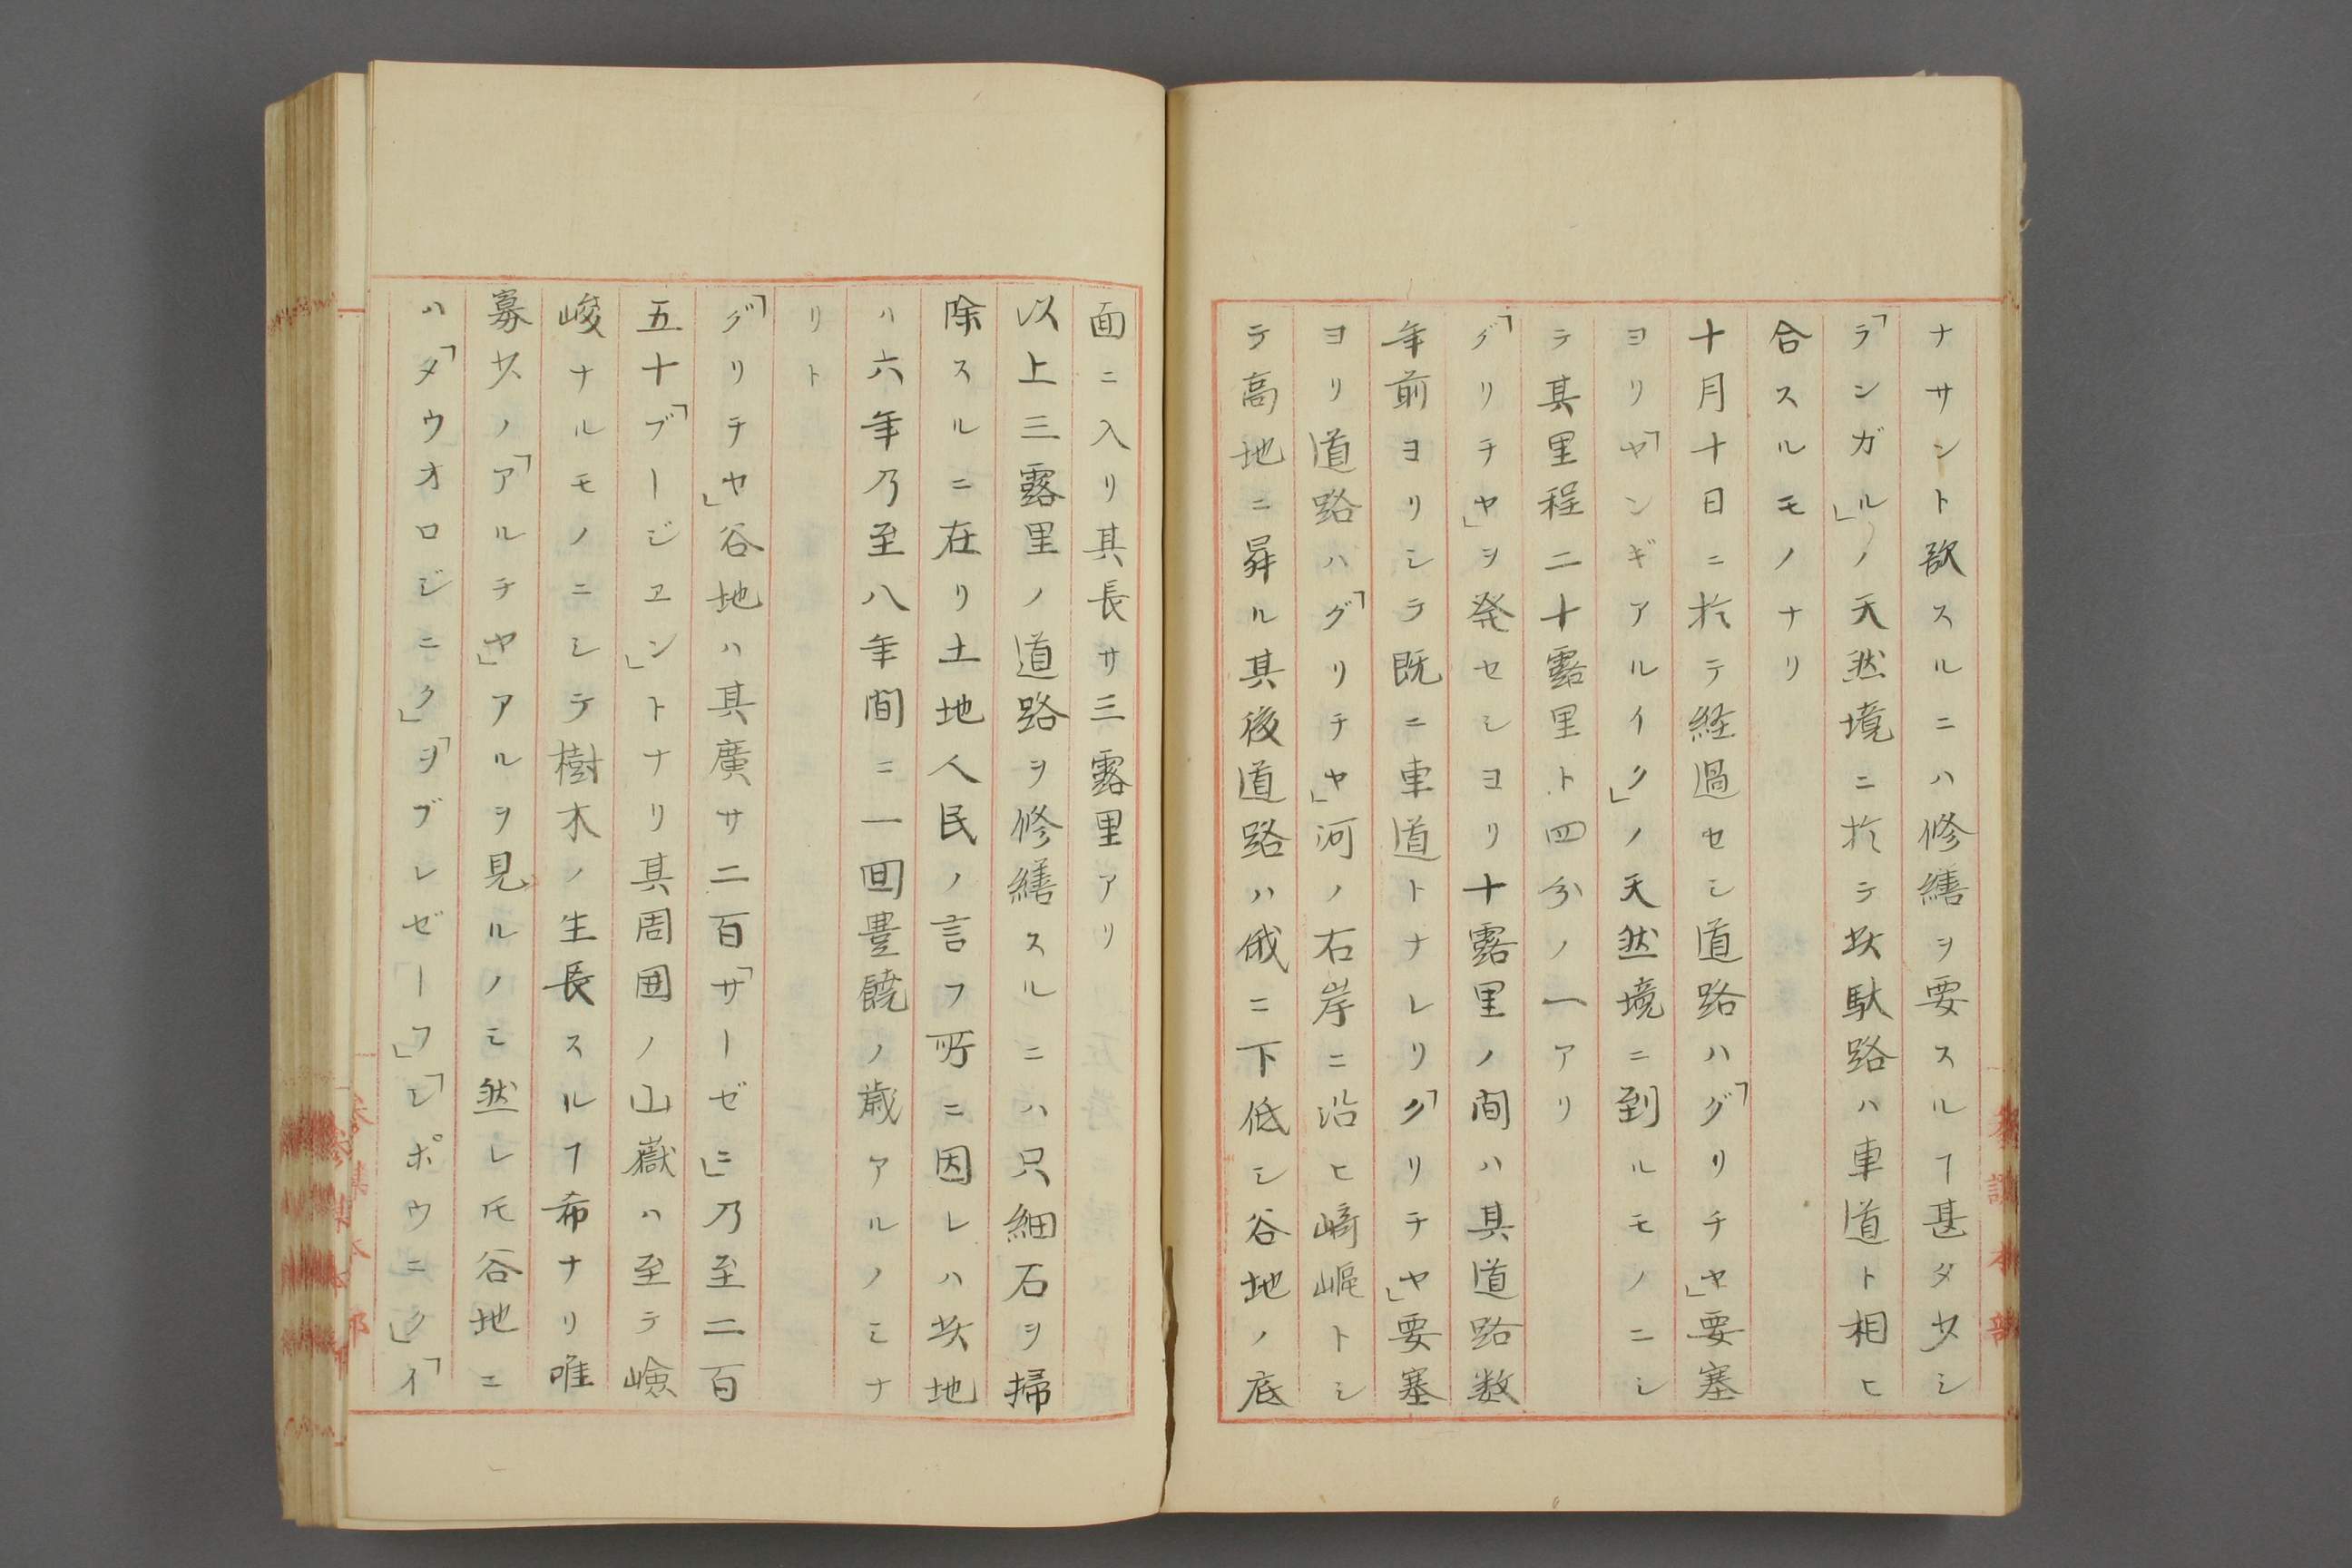 ナサント欲スルニハ修繕ヲ要スルヿ甚タ少シ
「ランガル」ノ天然境ニ於テ玆駄路ハ車道ト相ヒ
合スルモノナリ
十月十日ニ於テ経過セシ道路ハ「グリチヤ」要塞
ヨリ「ヤンギアルイク」ノ天然境ニ到ルモノニシ
テ其里程二十露里ト四分ノ一アリ
「グリチヤ」ヲ発セシヨリ十露里ノ間ハ其道路数
年前ヨリシテ既ニ車道トナレリ「グリチヤ」要塞
ヨリ道路ハ「グリチヤ」河ノ右岸ニ沿ヒ崎嶇トシ
テ高地ニ昇ル其後道路ハ俄ニ下低シ谷地ノ底
面ニ入リ其長サ三露里アリ
以上三露里ノ道路ヲ修繕スルニハ只細石ヲ掃
除スルニ在リ土地人民ノ言フ所ニ因レハ玆地
ハ六年乃至八年間ニ一回豊饒ノ歳アルノミナ
リト
「グリチヤ」谷地ハ其廣サ二百「サーゼニ」乃至二百
五十「ブージヱン」トナリ其周囲ノ山嶽ハ至テ嶮
峻ナルモノニシテ樹木ノ生長スルヿ希ナリ唯
寡少ノ「アルチヤ」アルヲ見ルノミ然レ𪜈谷地ニ
ハ「タウオロジニク」「ヲブレゼーフ」「シポウニク」「イ